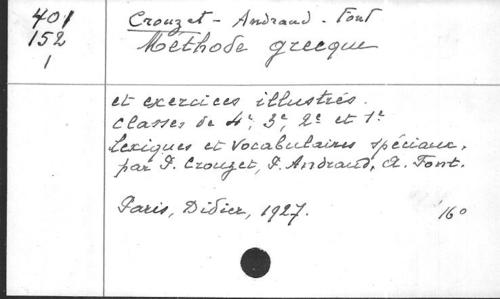 401
152
1
Crouzet - Andraud - Font
Méthode grecque
et exercices illustrés.
classes de 4e, 3e, 2e et 1e.
Lexiques et vocabulaires spéciaux,
par P. Crouzet, P. Andraud, A. Font.
Paris, Didier, 1927. 16°